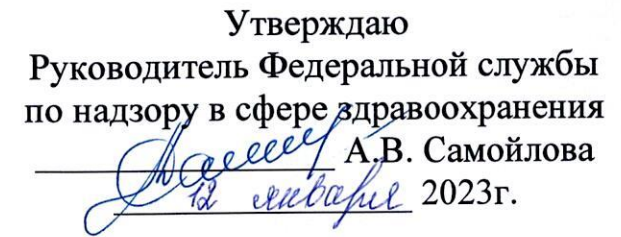 Утверждаю
Руководитель Федеральной службы
по надзору в сфере здравоохранения
А.В. Самойлова
12 января 2023г.